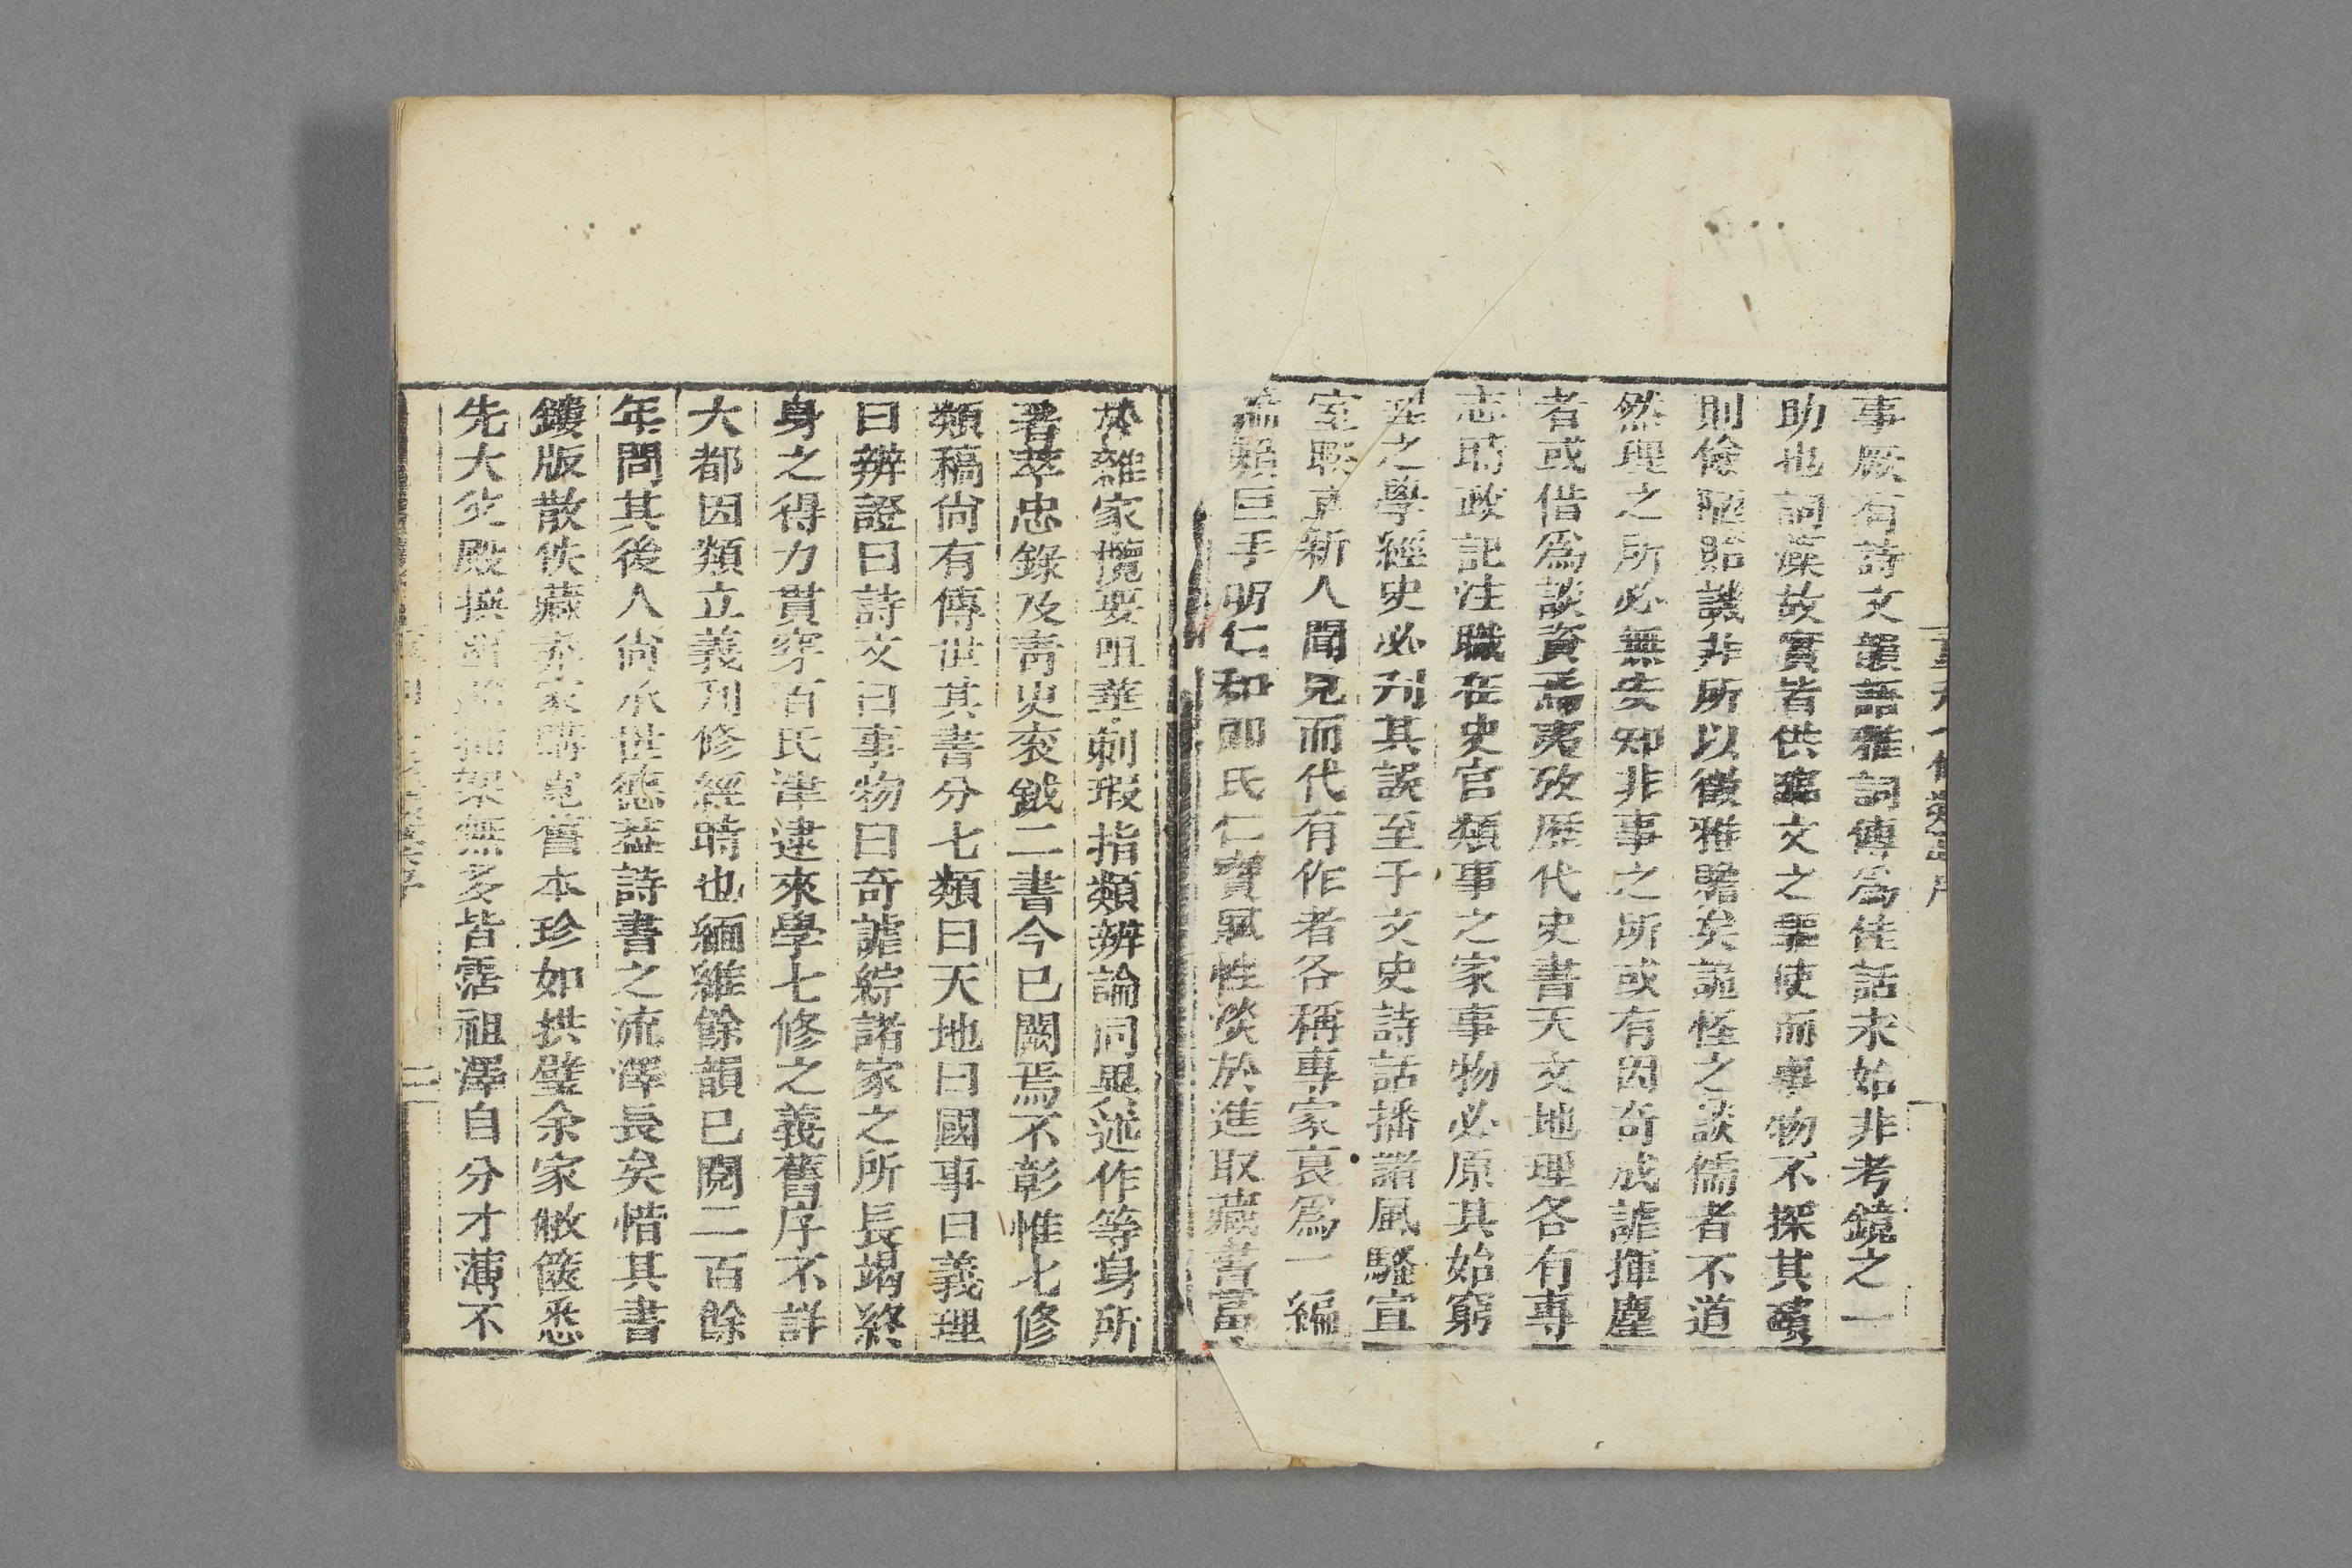 事厥有詩文韻語雅詞傳為佳話未始非考鏡之一
助也詞藻故實皆供臨文之
使而事物不探其賾
則儉陋貽譏非所以徵雅贍矣詭怪之談儒者不道
然理之所必無安知非事之所或有因奇成謔揮麈
者或借爲談資焉夷攷歷代史書天文地理各有專
志時政記注職在史官類事之家事物必原其始窮
理之學經史必刋其誤至于文史詩話播諸風騷宣
室聯
新人聞見而代有作者各稱專家裒爲一編
論
巨手明仁和郎氏仁寶賦性淡於進取藏書富
於雜家攬要咀華刺瑕指類辨論同異述作等身所
著萃忠錄及青史袞鉞二書今已闕焉不彰惟七修
類稿尙有傳世其書分七類曰天地曰國事曰義理
曰辨證曰詩文曰事物曰奇謔綜諸家之所長竭終
身之得力貫穿百氏津逮來學七修之義舊序不詳
大都因類立義刋修經時也緬維餘韻已閱二百餘
年問其後人尙承世德葢詩書之流澤長矣惜其書
鏤版散佚藏弆家購覓舊本珍如拱璧余家敝篋悉
先大父殿撰
架無多皆霑祖澤自分才薄不
二